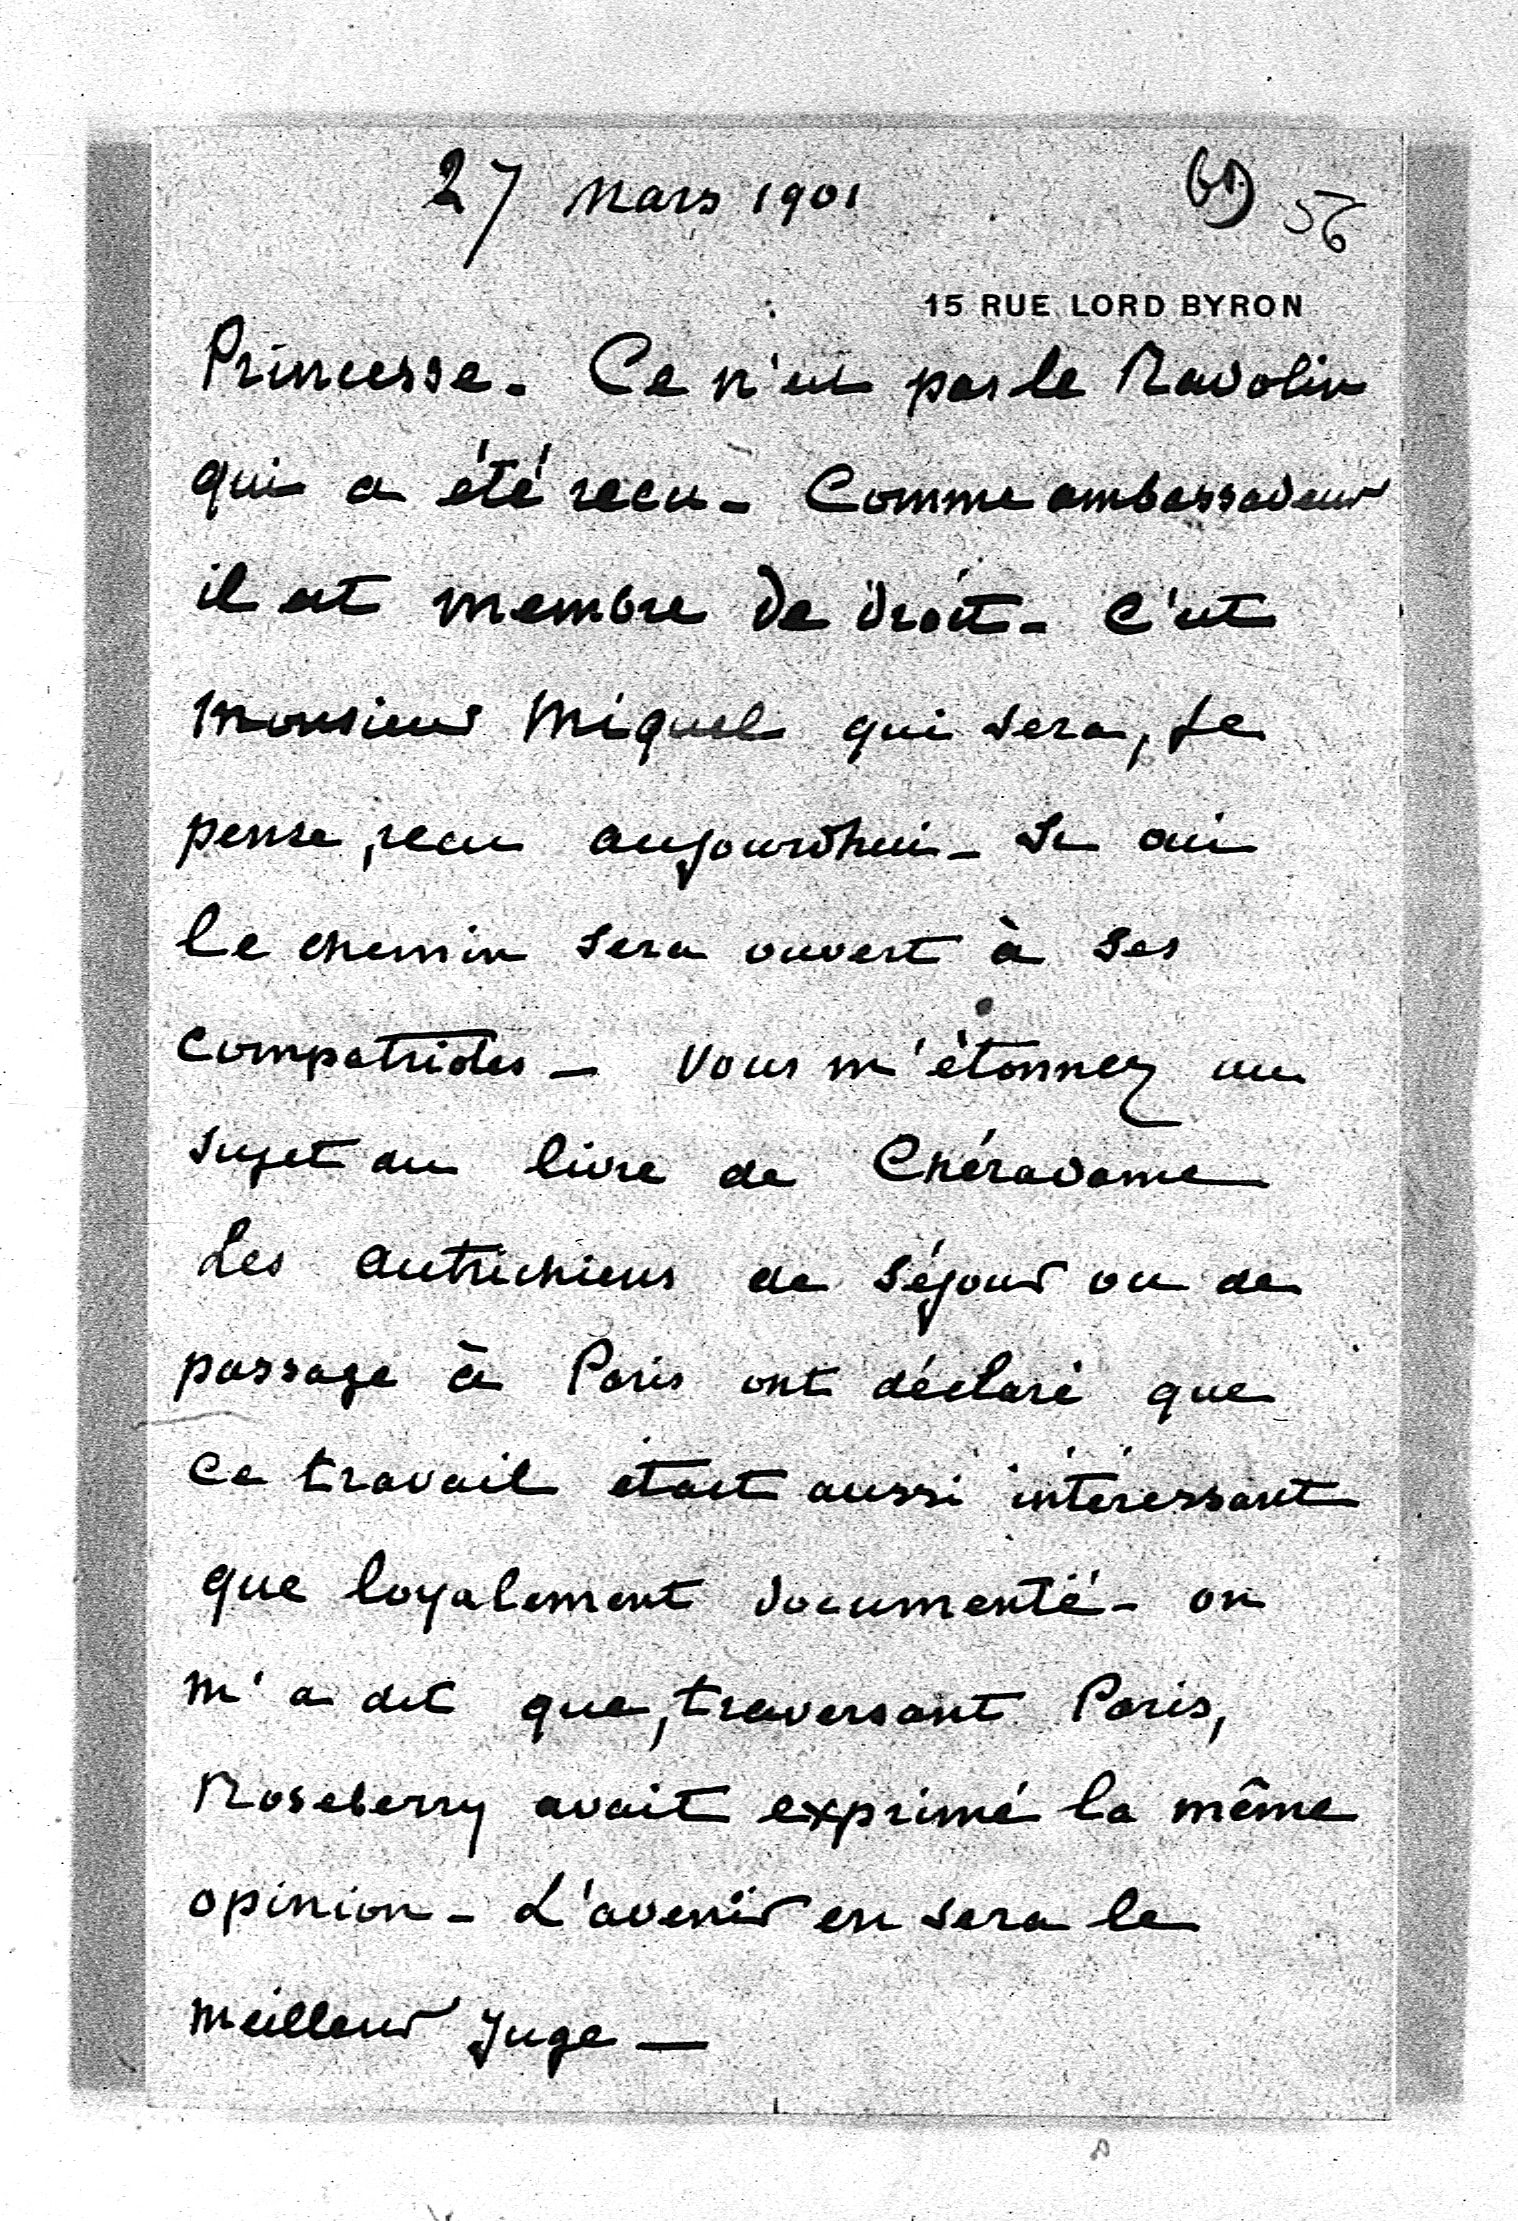 27 Mars 1901
56
15 RUE LORD BYRON
Princesse. Ce n'est pas le Radolin
qui a été recu - Comme ambassadeur
il est membre de droit - C'est
Monsieur Miquel qui sera, je
pense, recu aujourdhui - Si oui
le chemin sera ouvert à ses
compatriotes - Vous m'étonnez au
sujet du livre de Chéradame
Les autrichiens de séjour ou de
passage à Paris ont déclaré que
ce travail était aussi intéressant
que loyalement documenté - on
m'a dit que, traversant Paris,
Roseberry avait exprimé la même
opinion - L'avenir en sera le
meilleur juge -